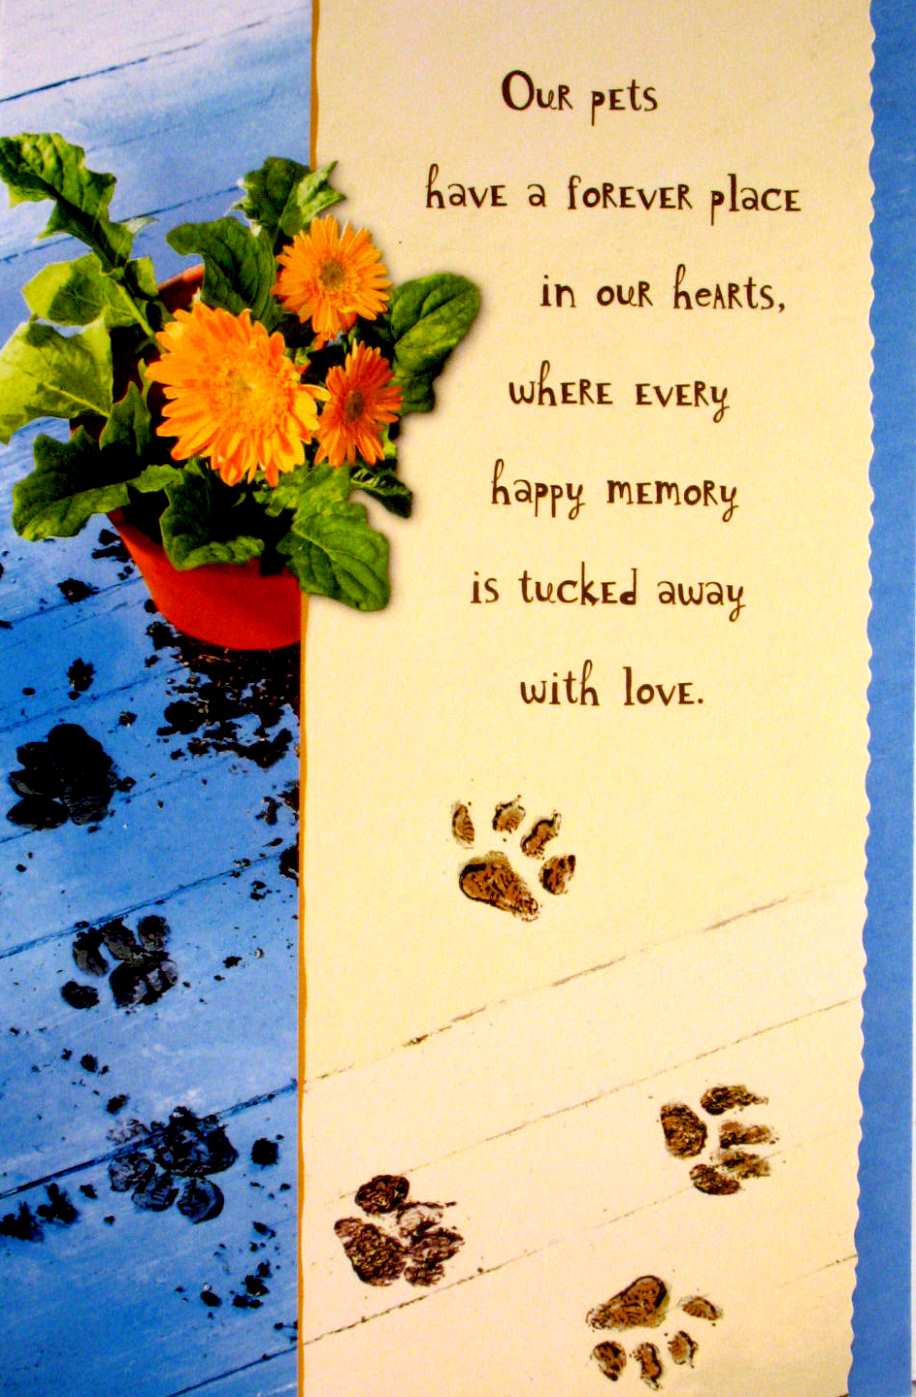 Our pets
have a forever place
in our hearts,
where every
happy memory
is tucked away
with love.